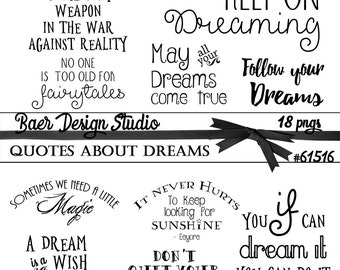 WEAPON
IN THE WAR
AGAINST REALITY
NO ONE
IS TOO OLD FOR
fairytales
Dreaming
May all your
Dreams
come true
Follow your
Dreams
Baer Design Studio
18 pngs
QUOTES ABOUT DREAMS
#61516
SOMETIMES WE NEED A LITTLE
Magic
A DREAM
IT NEVER HURTS
To Keep
looking For
SUNSHINE
- Eeyore
DON'T
YOU if CAN
dream it